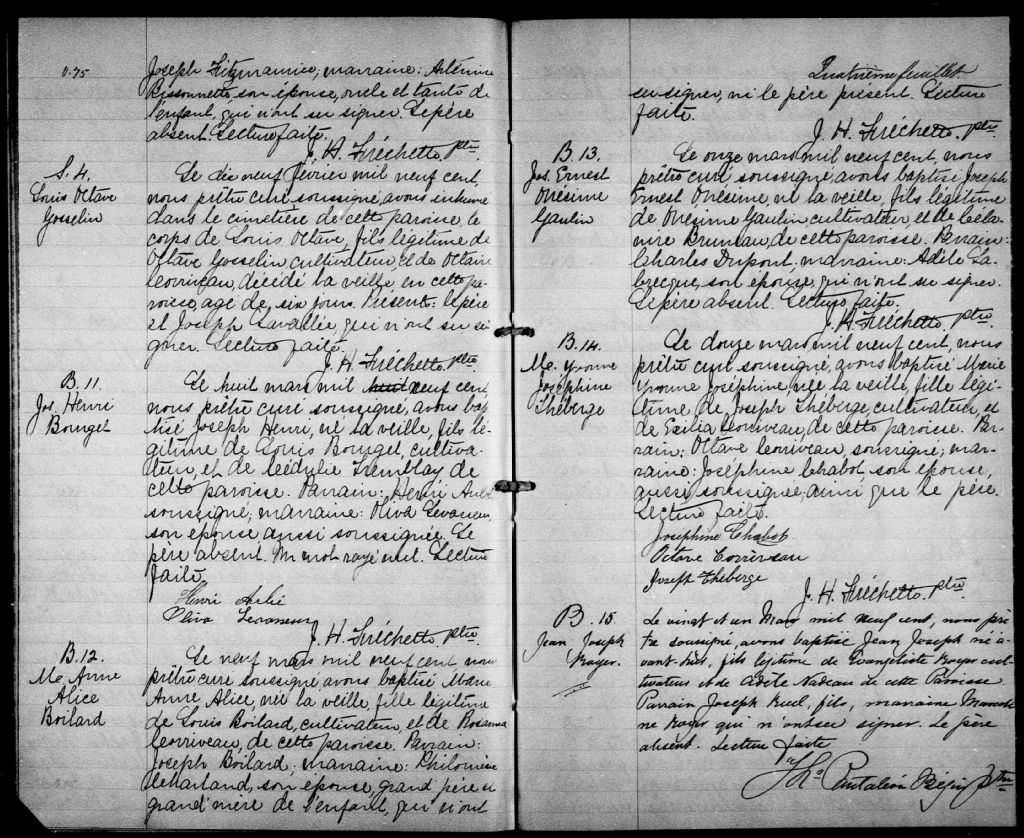 0.75
Joseph Fitzmaurice; marraine: Artémise
Bissonnette, son épouse, oncle et tante de
l'enfant, qui n'ont su signer. Le père
absent. Lecture faite.
J. H. Fréchette, ptre
S. 4.
Louis Octave
Gosselin
Le dix neuf février mil neuf cent,
nous prêtre curé soussigné, avons inhumé
dans le cimetière de cette paroisse le
corps de Louis Octave, fils légitime de
Octave Gosselin cultivateur, et de Octavie
Corriveau, décédé la veille, en cette pa-
roisse, agé de, six jours. Présents: le père
et Joseph Lavallée, qui n'ont su si-
gner. Lecture faite.
J. H. Fréchette, ptre
B. 11.
Jos. Henri
Bouget
Le huit mars mil huit neuf cent,
nous prêtre curé soussigné, avons bap-
tisé Joseph Henri, né la veille, fils lé-
gitime de Louis Bouget, cultiva-
teur, et de Cédulie Tremblay de
cette paroisse. Parrain: Henri
soussigné, marraine: Oliva Levasseur,
son épouse aussi soussignée. Le
père absent. Un mot rayé nul. Lecture
faite.
Henri
Oliva Levasseur
J. H. Fréchette, ptre
B. 12.
Me. Anne
Alice
Boilard
Le neuf mars mil neuf cent, nous
prêtre curé soussigné, avons baptisé Marie
Anne, Alice, née la veille, fille légitime
de Louis Boilard, cultivateur, et de Rosanna
Corriveau, de cette paroisse. Parrain:
Joseph Boilard; marraine: Philomène
Charland, son épouse, grand père et
grand'mère de l'enfant, qui n'ont
Quatrième feuillet.
su signer, ni le père présent. Lecture
faite.
J. H. Fréchette, ptre
B. 13.
Jos. Ernest
Onésime
Gaulin
Le onze mars mil neuf cent, nous
prêtre curé soussigné, avons baptisé Joseph
Ernest Onésime, né la veille, fils légitime
de Onésime Gaulin, cultivateur, et de Céla-
nire Bruneau, de cette paroisse. Parrain:
Charles Dupont, marraine: Adèle La-
brecque, son épouse, qui n'ont su signer.
Le père absent. Lecture faite.
J. H. Fréchette, ptre
B. 14.
Me. Yvonne
Joséphine
Théberge
Le douze mars mil neuf cent, nous
prêtre curé soussigné, avons baptisé Marie
Yvonne Joséphine, née la veille, fille légi-
time de Joseph Théberge, cultivateur, et
de Exilia Corriveau, de cette paroisse. Par-
rain: Octave Corriveau, soussigné; mar-
raine: Joséphine Chabot son épouse,
aussi soussignée, ainsi que le père.
Lecture faite.
Josephine Chabot
Octave Corriveau
Joseph Théberge
J. H. Fréchette, ptre
B. 15
Jean Joseph
Royer.
Le vingt et un Mars mil neuf cent, nous prê-
tre soussigné, avons baptisé Jean Joseph né a-
vant-hier, fils légitime de Evangéliste Royer cul-
tivateur et de Adèle Nadeau de cette Paroisse
Parrain Joseph Ruel, fils, marraine
ne Royer qui n'ont su signer. Le père
absent. Lecture faite
Pantaléon Bégin Ptre